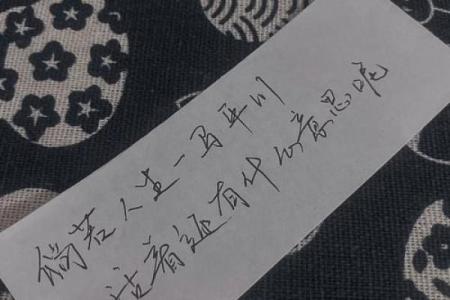 倘若人生一马平川
活着还有什么意思呢